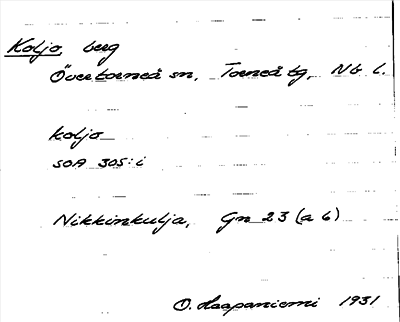 Koljo, berg
Övertorneå sn, Torneå tg, Nb l.
koljo
SOA 305:i
Nikkinkulja, Gn 23 (a 6)
O. Haapaniemi 1931